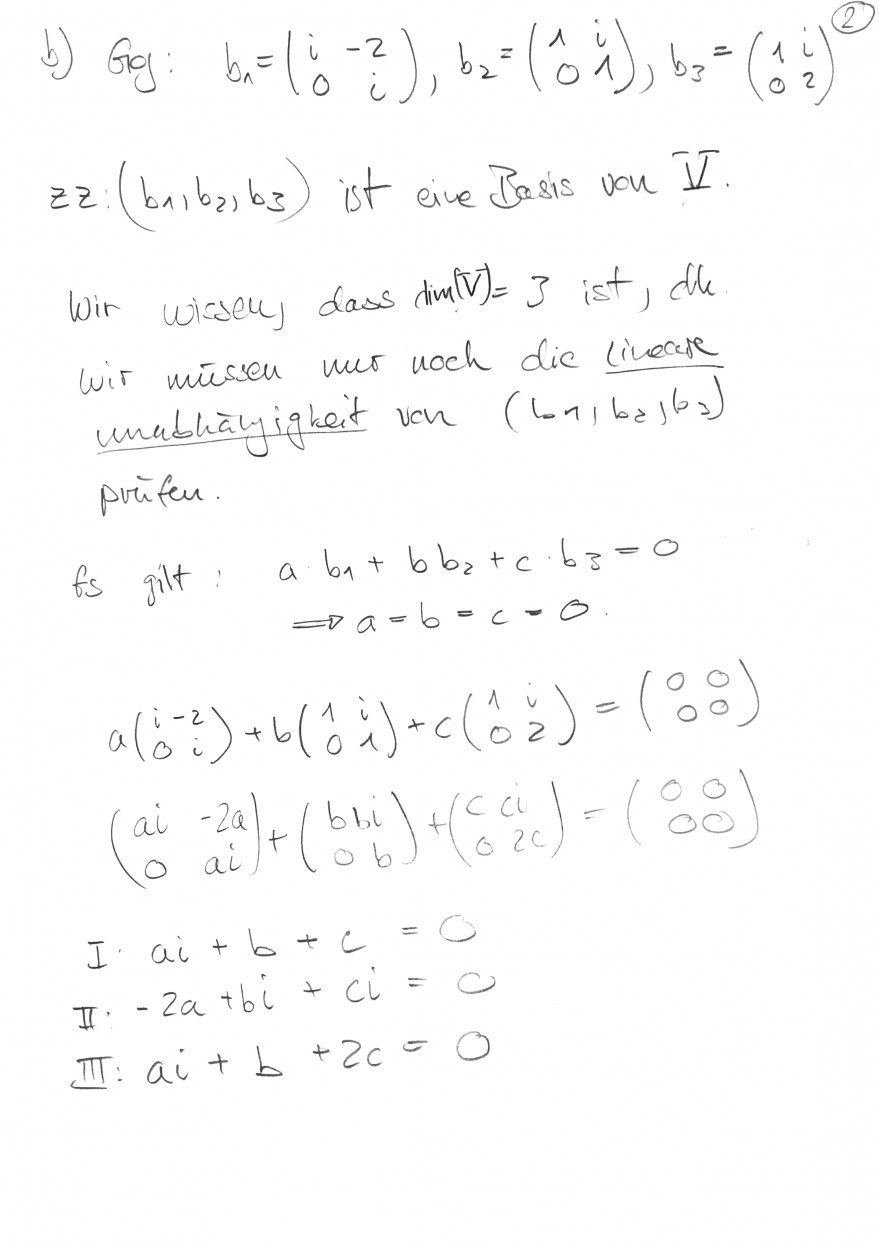 2
b) Geg: b₁ = (i -2; 0 i), b₂ = (1 i; 0 1), b₃ = (1 i; 0 2)
zz: (b1, b2, b3) ist eine Basis von V.
Wir wissen, dass dim(V) = 3 ist, dh.
wir müssen nur noch die lineare
unabhängigkeit von (b1, b2, b3)
prüfen.
Es gilt: a · b1 + b b2 + c · b3 = 0
⟹ a = b = c = 0.
a(i -2; 0 i) + b(1 i; 0 1) + c(1 i; 0 2) = (0 0; 0 0)
(ai -2a; 0 ai) + (b bi; 0 b) + (c ci; 0 2c) = (0 0; 0 0)
I: ai + b + c = 0
II: -2a + bi + ci = 0
III: ai + b + 2c = 0